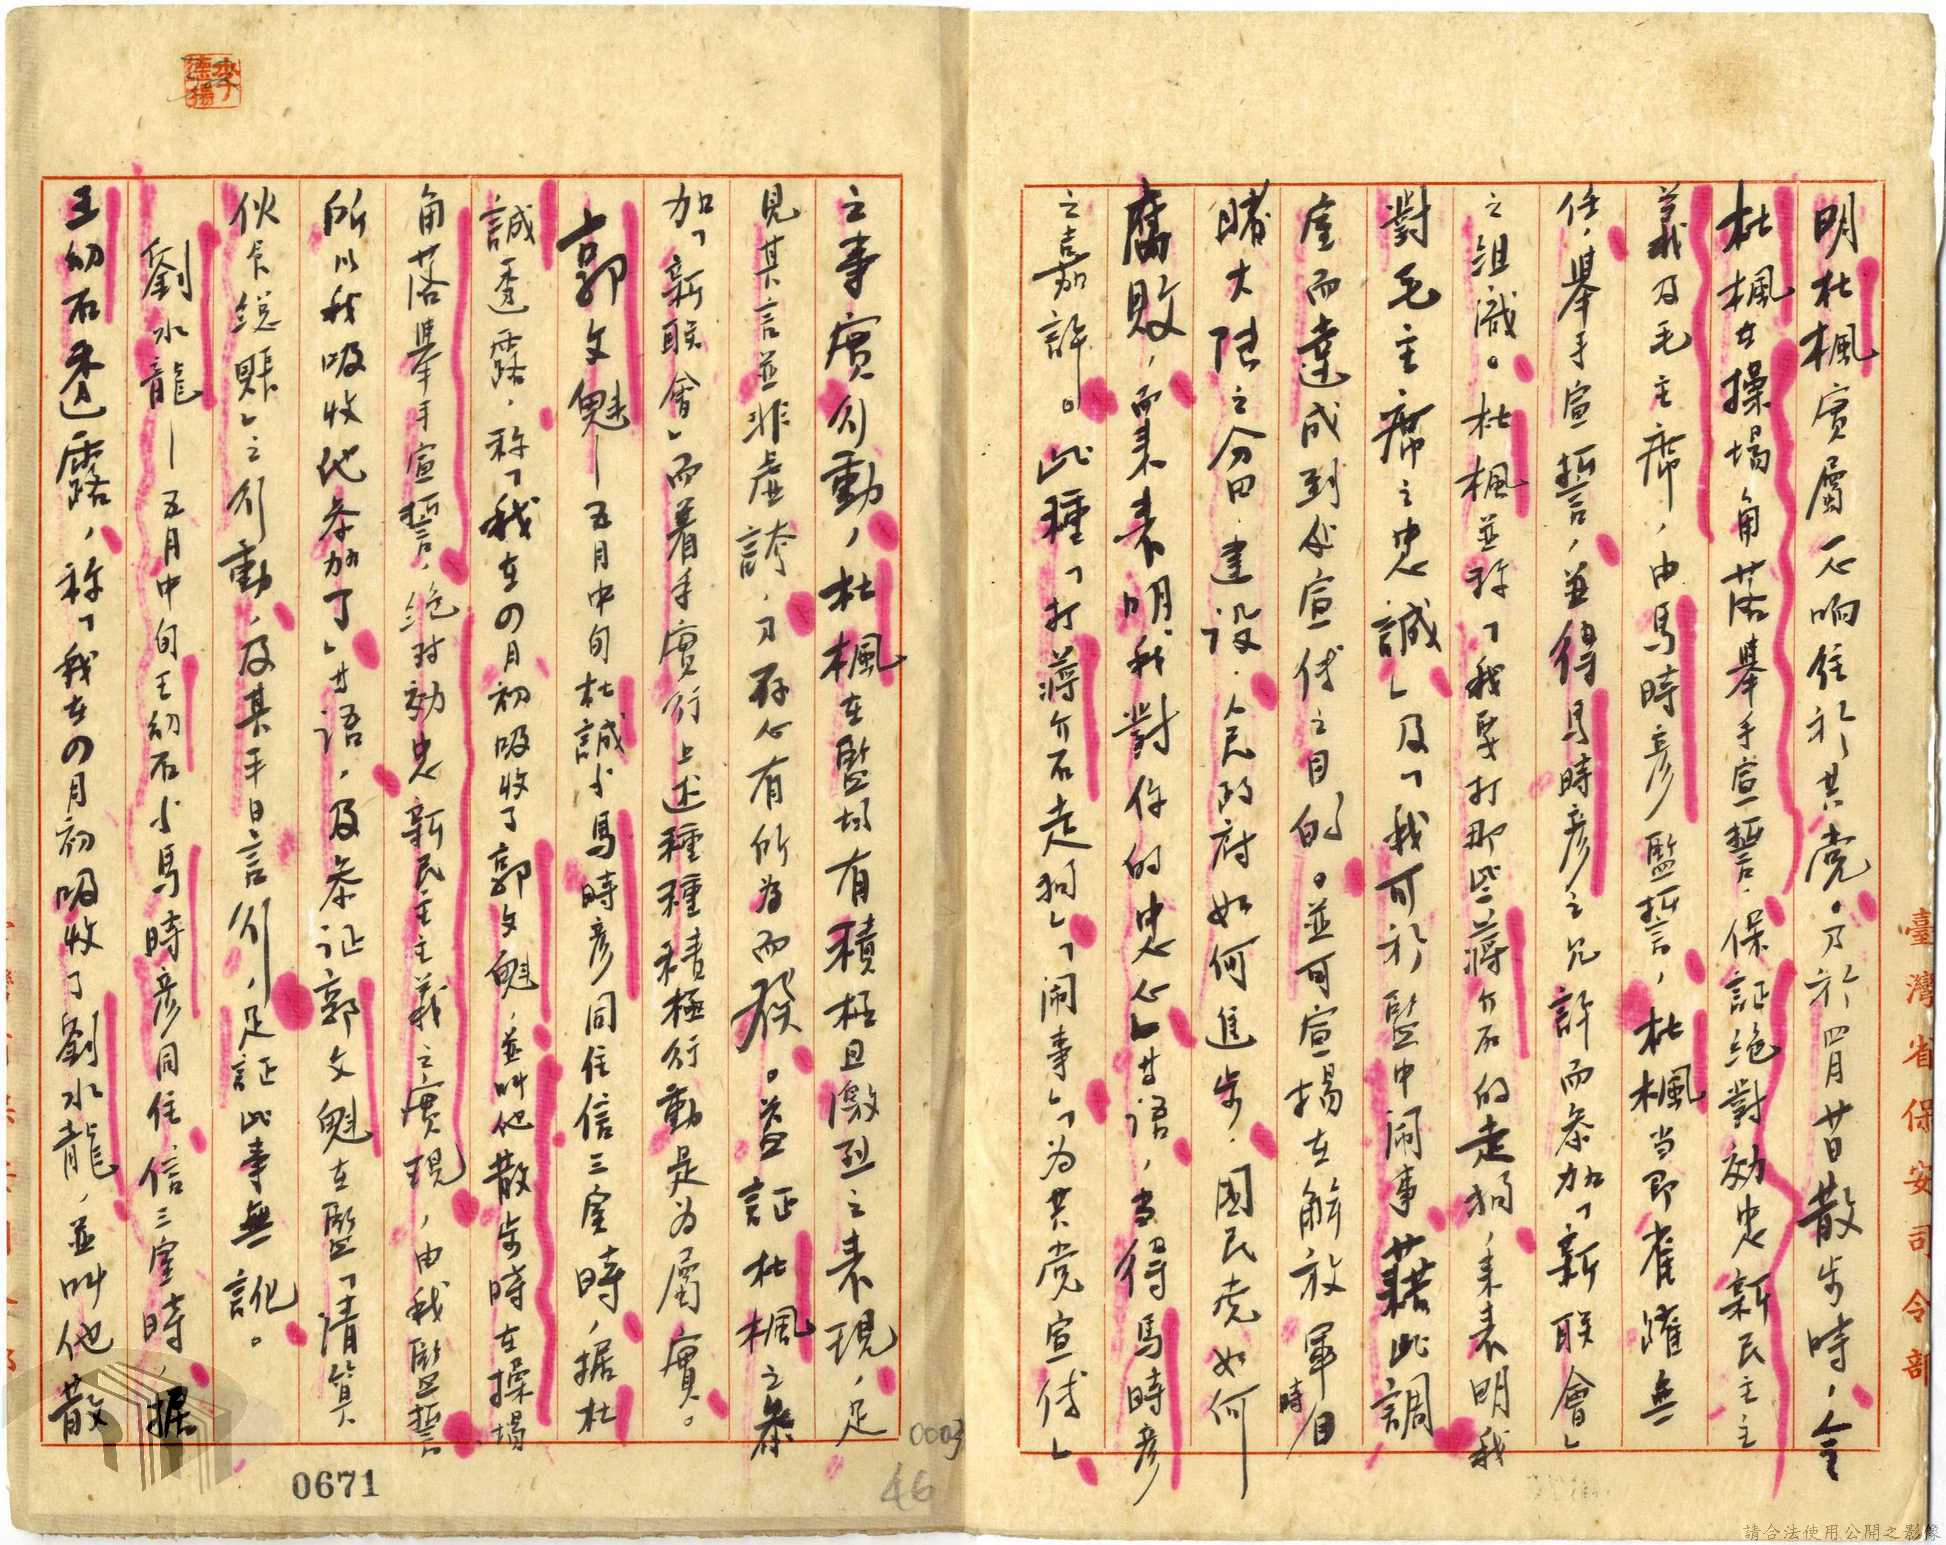 明杜楓實屬不响往於共党。乃於四月廿日散步時,令
杜楓在操場角落舉手宣誓.保証絶對効忠新民主主
義及毛主席,由馬時彥監誓,杜楓当即雀躍無
任,舉手宣誓,並得馬時彥之兄許而参加「新联會」
之組識。杜楓並称「我要打那些蔣介石的走狗,来表明我
對毛主席之忠誠」及「我可於監中鬧事藉此調
室而達成到処宣传之目的。並可宣揚在解放軍時自
睹大陸之分田.建设.人民政府如何進步.國民党如何
腐敗,而来表明我對你的忠心」廿语,當得馬時彥
之嘉許。此種「打蔣介石走狗」「鬧事」「为共党宣传」
之事實行動,杜楓在監均有積極且激烈之表現,足
見其言並非虚誇,乃存心有所为而發。益証杜楓之叅
加「新联會」而着手實行上述種種積極行動是为屬實。
郭文魁—五月中旬杜誠与馬時彥同住信三室時,据杜
誠透露.称「我在四月初吸收了郭文魁,並叫他散步時在操場
角落舉手宣誓.絶对効忠新民主主義之實現,由我監誓
所以我吸收他参加了」廿语,及参证郭文魁在監「清算
伙食総賬」之行動,及其平日言行,足証此事無訛。
劉水龍—五月中旬王幼石与馬時彥同住信三室時,据
王幼石透露,称「我在四月初吸收了劉水龍,並叫他散
臺灣省保安司令部
李
0671
0003
46
請合法使用公開之影像